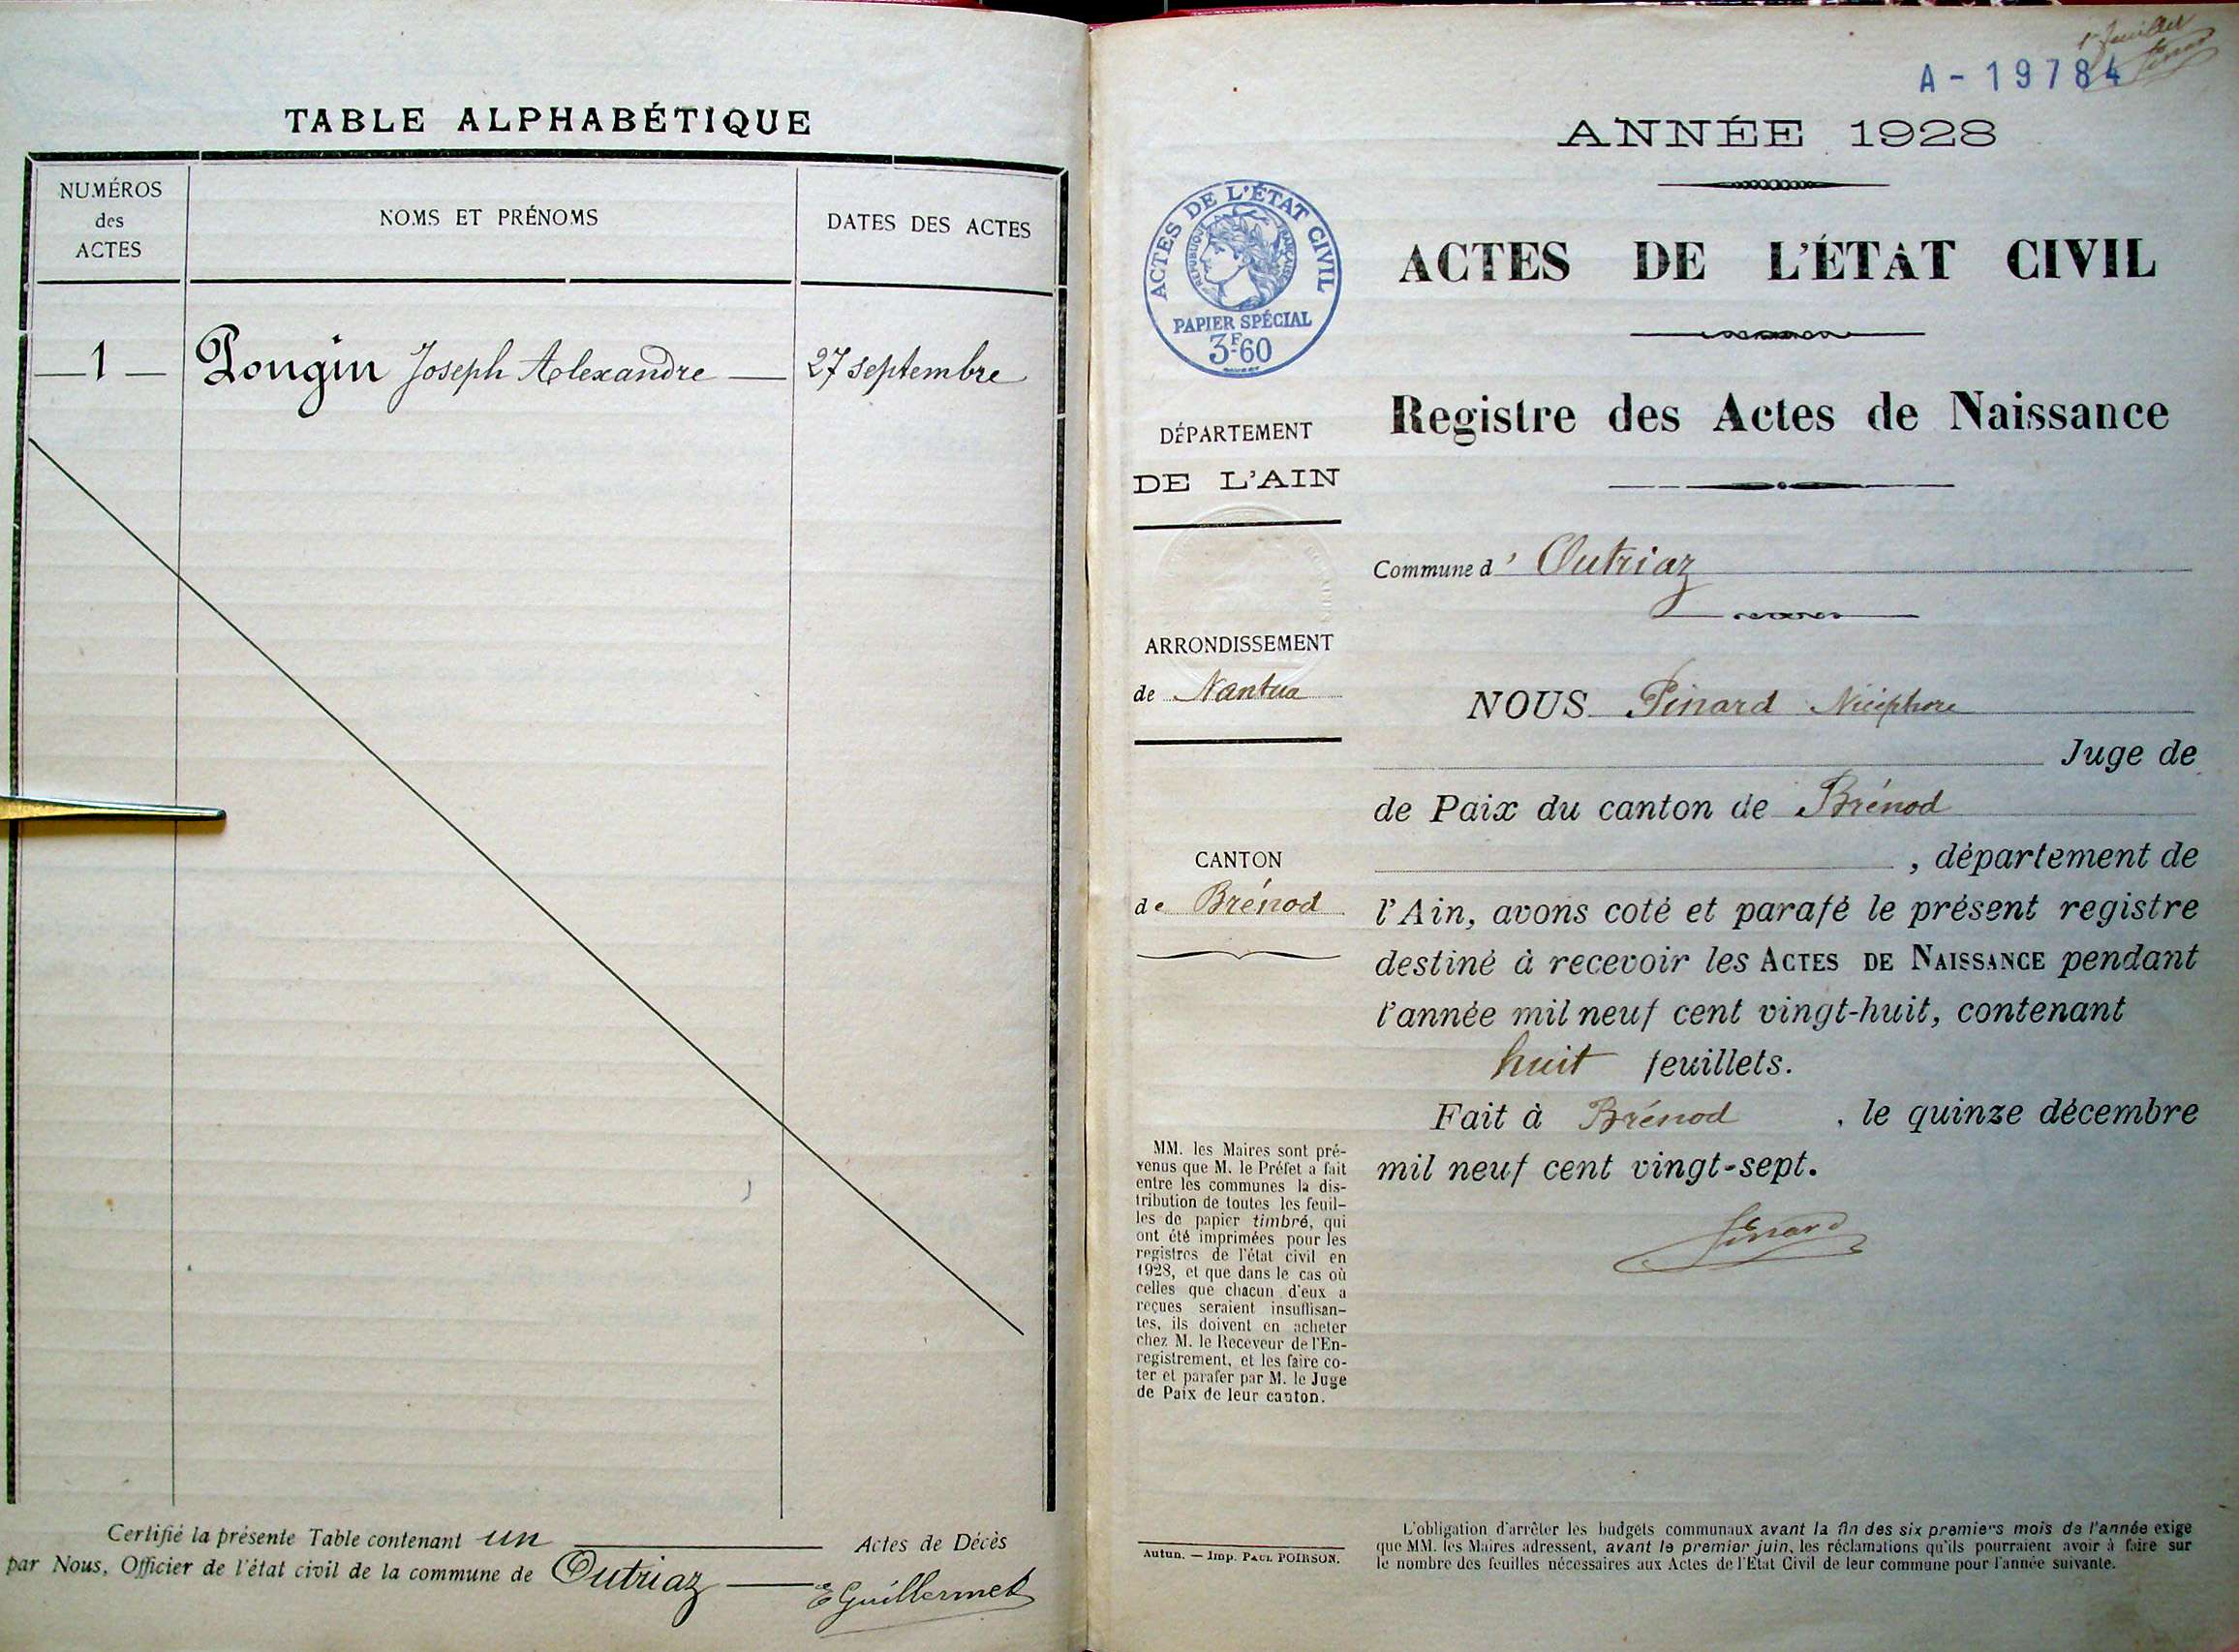 TABLE ALPHABÉTIQUE
NUMÉROS
des
ACTES
NOMS ET PRÉNOMS
DATES DES ACTES
1 Pongin Joseph Alexandre 27 septembre
Certifié la présente Table contenant un Actes de Décès
par Nous, Officier de l'état civil de la commune de Outriaz
E Guillermet
1er feuillet
Pinard
A-19784
ANNÉE 1928
ACTES DE L'ÉTAT CIVIL
RÉPUBLIQUE FRANÇAISE
PAPIER SPÉCIAL
3F.60
ACTES DE L'ÉTAT CIVIL
Registre des Actes de Naissance
DÉPARTEMENT
DE L'AIN
ARRONDISSEMENT
de Nantua
CANTON
de Brénod
MM. les Maires sont pré-
venus que M. le Préfet a fait
entre les communes la dis-
tribution de toutes les feuil-
les de papier timbré, qui
ont été imprimées pour les
registres de l'état civil en
1928, et que dans le cas où
celles que chacun d'eux a
reçues seraient insuffisan-
tes, ils doivent en acheter
chez M. le Receveur de l'En-
registrement, et les faire co-
ter et parafer par M. le Juge
de Paix de leur canton.
Autun. — Imp. PAUL POIRSON.
Commune d' Outriaz
NOUS Pinard Nicéphore
Juge de
de Paix du canton de Brénod
, département de
l'Ain, avons coté et parafé le présent registre
destiné à recevoir les ACTES DE NAISSANCE pendant
l'année mil neuf cent vingt-huit, contenant
huit feuillets.
Fait à Brénod , le quinze décembre
mil neuf cent vingt-sept.
Pinard
L'obligation d'arrêter les budgets communaux avant la fin des six premiers mois de l'année exige
que MM. les Maires adressent, avant le premier juin, les réclamations qu'ils pourraient avoir à faire sur
le nombre des feuilles nécessaires aux Actes de l'Etat Civil de leur commune pour l'année suivante.